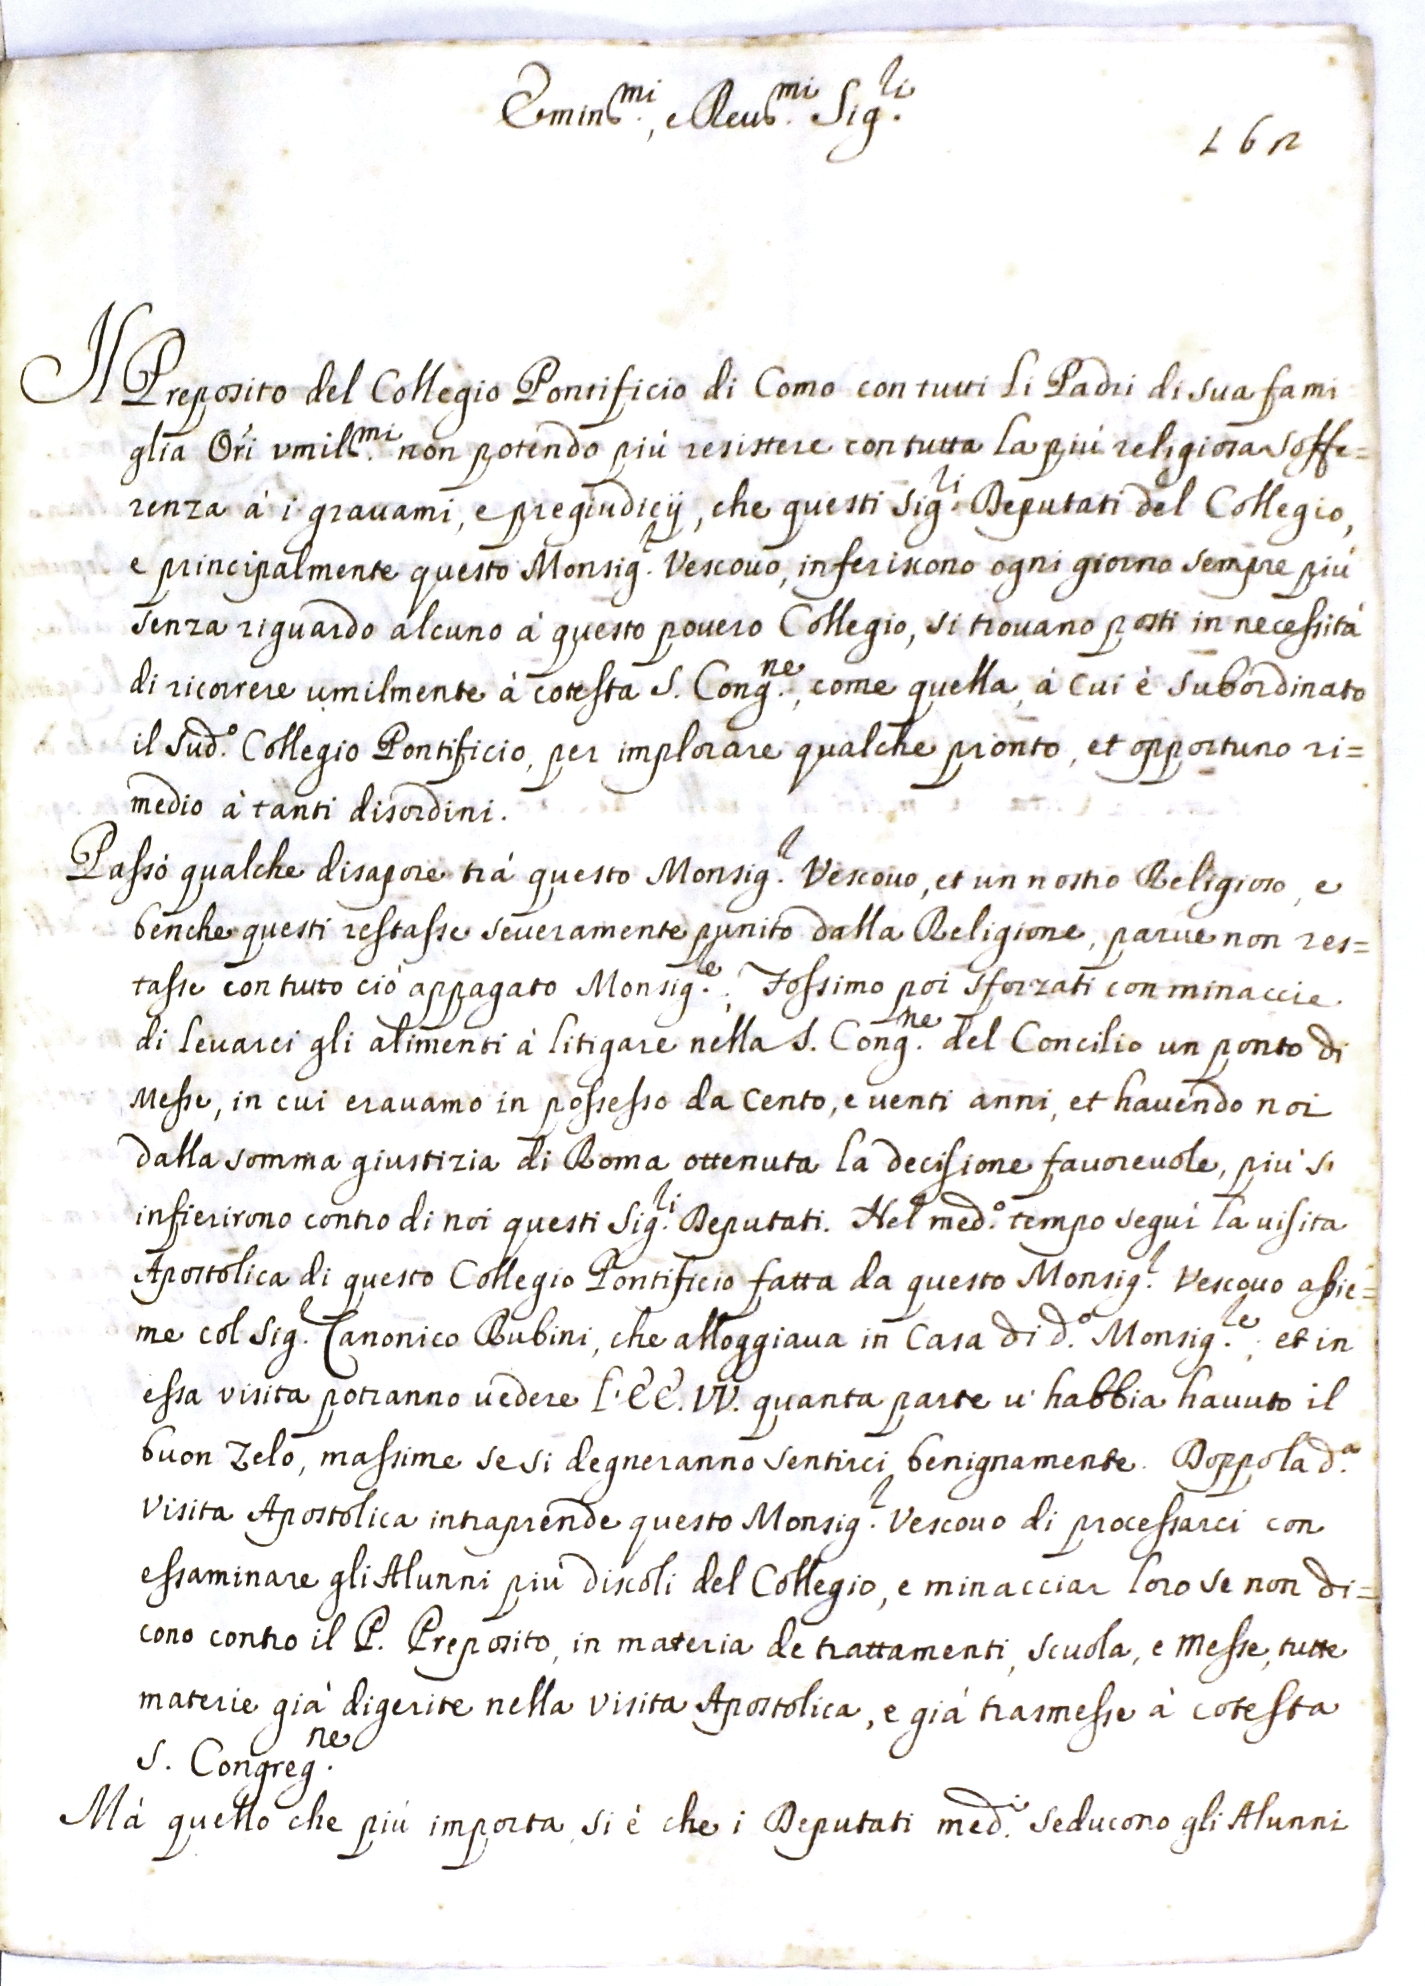 Emin.mi, e Reu.mi Sig.li
162
Il Preposito del Collegio Pontificio di Como con tutti li Padri di sua fami
glia Ori vmil.mi non potendo più resistere con tutta la più religiosa soffe=
renza à i grauami, e pregiudicij, che questi Sig.li Deputati del Collegio,
e principalmente questo Monsig.r Vescouo, inferiscono ogni giorno sempre più
senza riguardo alcuno à questo pouero Collegio, si trouano posti in necessità
di ricorrere umilmente à cotesta S. Cong.ne, come quella, à cui è subordinato
il sud.o Collegio Pontificio, per implorare qualche pronto, et opportuno ri=
medio à tanti disordini.
Passò qualche disapore trà questo Monsig.r Vescouo, et un nostro Religioso, e
benche questi restasse seueramente punito dalla Religione, parue non res=
tasse con tutto ciò appagato Monsig.e; Fossimo poi sforzati con minaccie
di leuarci gli alimenti à litigare nella S. Cong.ne del Concilio un ponto di
Messe, in cui erauamo in possesso da cento, e uenti anni, et hauendo noi
dalla somma giustizia di Roma ottenuta la decisione fauoreuole, più si
infierirono contro di noi questi Sig.li Deputati. Nel med.o tempo seguì la uisita
Apostolica di questo Collegio Pontificio fatta da questo Monsig.r Vescouo assie=
me col Sig.r Canonico Rubini, che alloggiaua in Casa di d.o Monsig.re; et in
essa visita potranno uedere l'EE. VV. quanta parte u' habbia hauuto il
buon zelo, massime se si degneranno sentirci benignamente. Doppo la d.a
Visita Apostolica intraprende questo Monsig.r Vescouo di processarci con
essaminare gli Alunni più discoli del Collegio, e minacciar loro se non di=
cono contro il P. Preposito, in materia de trattamenti, scuola, e Messe, tutte
materie già digerite nella visita Apostolica, e già trasmesse à cotesta
S. Congreg.ne
Mà quello che più importa, si è che i Deputati med.i seducono gli Alunni